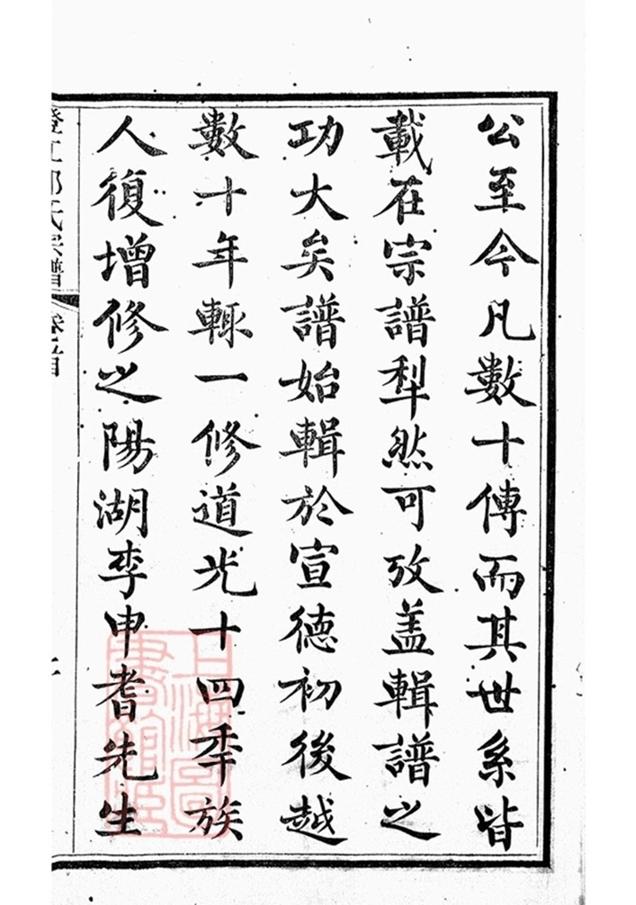 公至今凡數十傳而其世系皆
載在宗譜犁然可攷盖輯譜之
功大矣譜始輯於宣德初後越
數十年輒一修道光十四季族
人復增修之陽湖李申耆先生
氏宗譜 卷首
上海圖書館藏